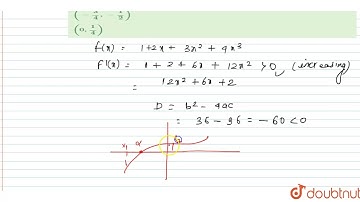 (-3/4, -1/2)
(0, 1/4)
f(x) = 1+2x + 3x² + 4x³
f'(x) = 1 + 2 + 6x + 12x² > 0 (increasing)
= 12x² + 6x + 2
D = b² - 4ac
= 36 - 96 = -60 < 0
α
doubtnut